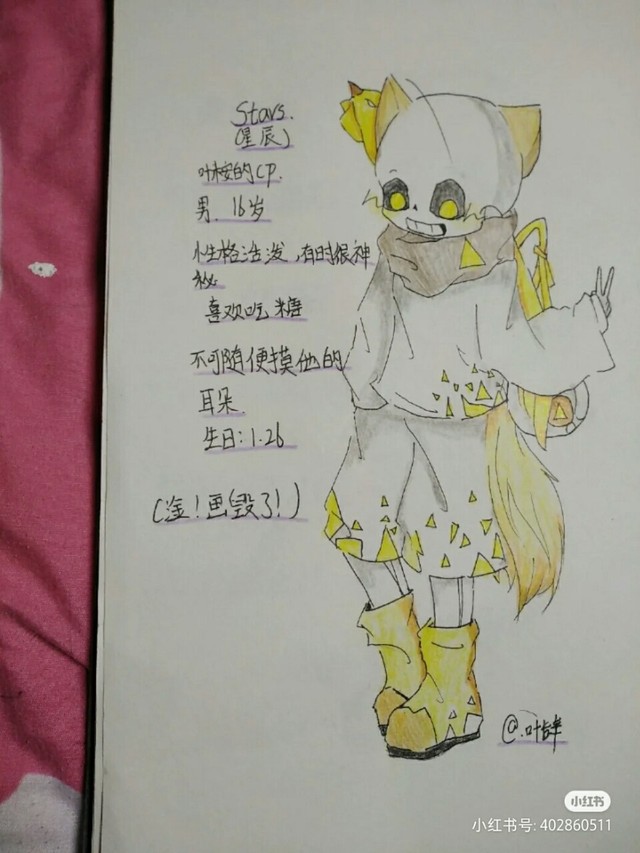 Stars.
(星辰)
叶桉的CP.
男. 16岁
性格活泼,有时很神
秘
喜欢吃糖
不可随便摸他的
耳朵.
生日:1.26
(淦!画毁了!)
@.叶辞
小红书
小红书号: 402860511